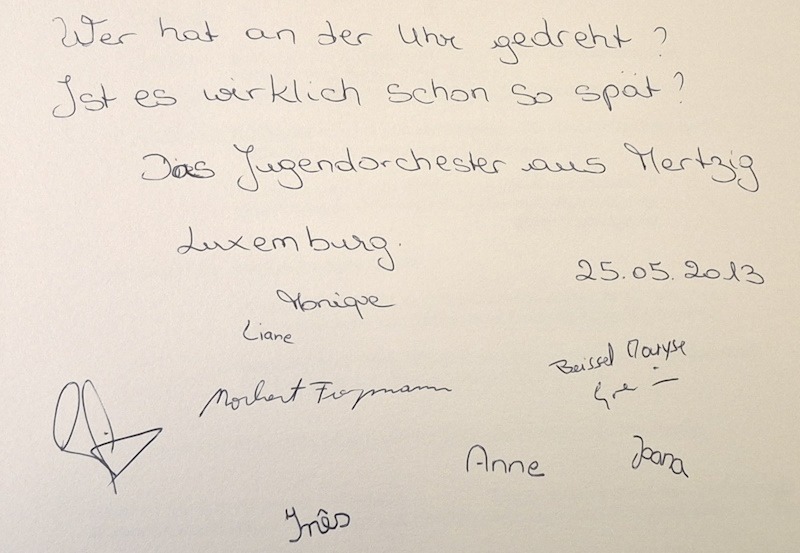 Wer hat an der Uhr gedreht?
Ist es wirklich schon so spät?
Das Jugendorchester aus Mertzig
Luxemburg.
25.05.2013
Monique
Liane
Beissel Maryse
Norbert
Anne
Joana
Inês